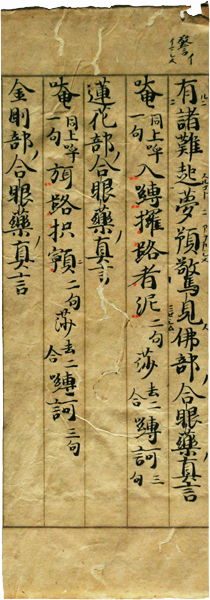 警イ
有諸難起夢預驚見佛部合眼藥真言
唵同上呼一句入嚩攞路者泥二句莎去二合嚩訶三句
蓮花部合眼藥真言
唵同上呼一句路枳二句莎去二合嚩訶三句
金剛部合眼藥真言